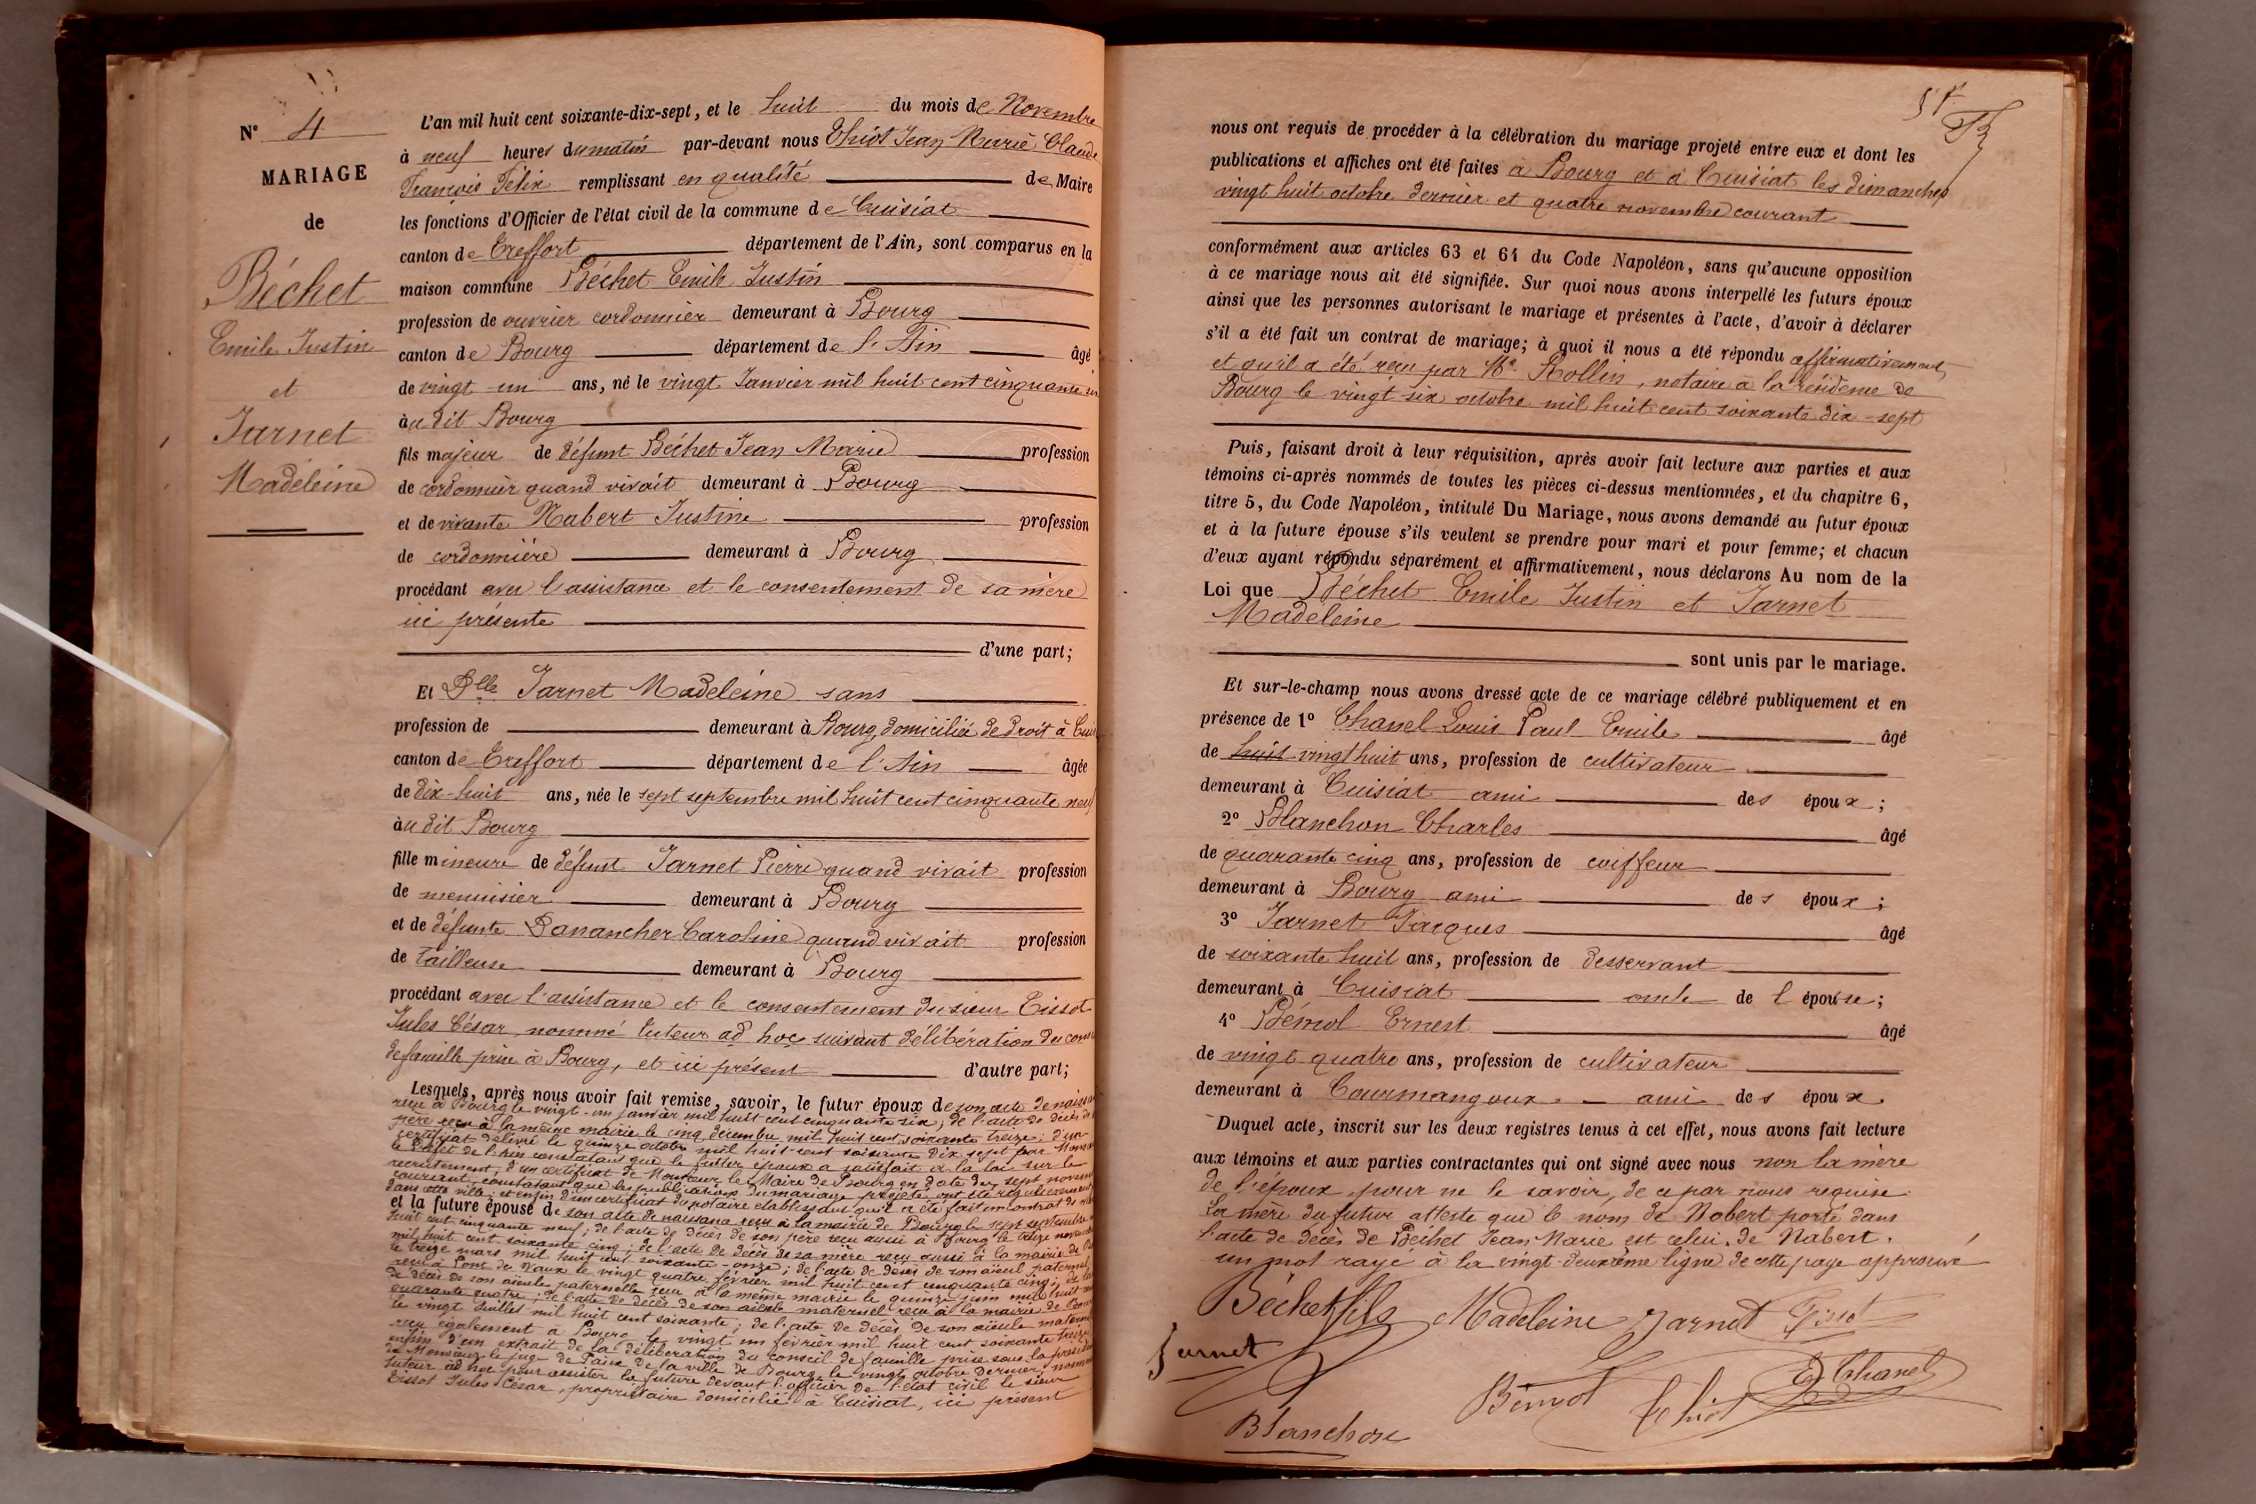 N° 4
MARIAGE
de
Béchet
Emile Justin
et
Jarnet
Madeleine
L'an mil huit cent soixante-dix-sept, et le huit du mois de Novembre
à neuf heures du matin par-devant nous Thiot Jean Marie Claude
François Félix remplissant en qualité de Maire
les fonctions d'Officier de l'état civil de la commune de Cuisiat
canton de Treffort département de l'Ain, sont comparus en la
maison commune Béchet Emile Justin
profession de ouvrier cordonnier demeurant à Bourg
canton de Bourg département de l'Ain âgé
de vingt un ans, né le vingt Janvier mil huit cent cinquante six
àu dit Bourg
fils majeur de défunt Béchet Jean Marie profession
de cordonnier quand vivait demeurant à Bourg
et de vivante Nabert Justine profession
de cordonnière demeurant à Bourg
procédant avec l'assistance et le consentement de sa mère
ici présente
d'une part;
Et Dlle Jarnet Madeleine sans
profession de demeurant à Bourg, domiciliée de droit à
canton de Treffort département de l'Ain âgée
de dix-huit ans, née le sept septembre mil huit cent cinquante neuf
àu dit Bourg
fille mineure de défunt Jarnet Pierre quand vivait profession
de menuisier demeurant à Bourg
et de défunte Danancher Caroline quand vivait profession
de tailleuse demeurant à Bourg
procédant avec l'assistance et le consentement du sieur Tissot
Jules César, nommé tuteur ad hoc suivant délibération du
de famille prise à Bourg, et ici présent d'autre part;
Lesquels, après nous avoir fait remise, savoir, le futur époux de son acte de
reçu à Bourg le vingt-un janvier mil huit cent cinquante six; de l'acte de décès de
père reçu à la même mairie le cinq décembre mil huit cent soixante treize; d'un
certificat délivré le quinze octobre mil huit cent soixante dix sept par
le Préfet de l'Ain constatant que le futur époux a satisfait à la loi sur le
recrutement; d'un certificat de Monsieur le Maire de Bourg en date du sept
courant, constatant que les publications du mariage projeté ont été régulièrement
dans cette ville; et enfin d'un certificat du notaire établissant qu'il a été fait un contrat de
et la future épouse de son acte de naissance reçu à la mairie de Bourg le sept septembre
huit cent cinquante neuf; de l'acte de décès de son père reçu aussi à Bourg le treize
mil huit cent soixante cinq; de l'acte de décès de sa mère reçu aussi à la mairie de
le treize mars mil huit cent soixante-onze; de l'acte de décès de son aïeul paternel
reçu à Pont de Vaux le vingt quatre février mil huit cent cinquante cinq; de
de décès de son aïeule paternelle reçu à la même mairie le quinze juin mil huit
quarante quatre; de l'acte de décès de son aïeul maternel reçu à la mairie de
le vingt Juillet mil huit cent soixante; de l'acte de décès de son aïeule
reçu également à Bourg le vingt un février mil huit cent soixante treize
enfin d'un extrait de la délibération du conseil de famille prise sous la
de Monsieur le juge de Paix de la ville de Bourg le vingt octobre dernier,
tuteur ad hoc pour assister la future devant l'officier de l'état civil le sieur
Tissot Jules César, propriétaire domicilié à Cuisiat, ici présent
51
nous ont requis de procéder à la célébration du mariage projeté entre eux et dont les
publications et affiches ont été faites à Bourg et à Cuisiat les dimanches
vingt huit octobre dernier et quatre novembre courant
conformément aux articles 63 et 64 du Code Napoléon, sans qu'aucune opposition
à ce mariage nous ait été signifiée. Sur quoi nous avons interpellé les futurs époux
ainsi que les personnes autorisant le mariage et présentes à l'acte, d'avoir à déclarer
s'il a été fait un contrat de mariage; à quoi il nous a été répondu affirmativement
et qu'il a été reçu par Me Rollin, notaire à la résidence de
Bourg le vingt six octobre mil huit cent soixante dix-sept
Puis, faisant droit à leur réquisition, après avoir fait lecture aux parties et aux
témoins ci-après nommés de toutes les pièces ci-dessus mentionnées, et du chapitre 6,
titre 5, du Code Napoléon, intitulé Du Mariage, nous avons demandé au futur époux
et à la future épouse s'ils veulent se prendre pour mari et pour femme; et chacun
d'eux ayant répondu séparément et affirmativement, nous déclarons Au nom de la
Loi que Béchet Emile Justin et Jarnet
Madeleine
sont unis par le mariage.
Et sur-le-champ nous avons dressé acte de ce mariage célébré publiquement et en
présence de 1° Chanel Louis Paul Emile âgé
de huit vingt huit ans, profession de cultivateur
demeurant à Cuisiat ami des époux;
2° Blanchon Charles âgé
de quarante cinq ans, profession de coiffeur
demeurant à Bourg ami des époux;
3° Jarnet Jacques âgé
de soixante huit ans, profession de desservant
demeurant à Cuisiat oncle de l'épouse;
4° Bémol Ernest âgé
de vingt quatre ans, profession de cultivateur
demeurant à Courmangoux ami des époux.
Duquel acte, inscrit sur les deux registres tenus à cet effet, nous avons fait lecture
aux témoins et aux parties contractantes qui ont signé avec nous non la mère
de l'époux pour ne le savoir, de ce par nous requise.
La mère du futur atteste que le nom de Nobert porté dans
l'acte de décès de Béchet Jean Marie est celui de Nabert.
un mot rayé à la vingt-deuxième ligne de cette page approuvé
Béchet fils Madeleine Jarnet Tissot
Jarnet
Bémol Thiot Chanel
Blanchon